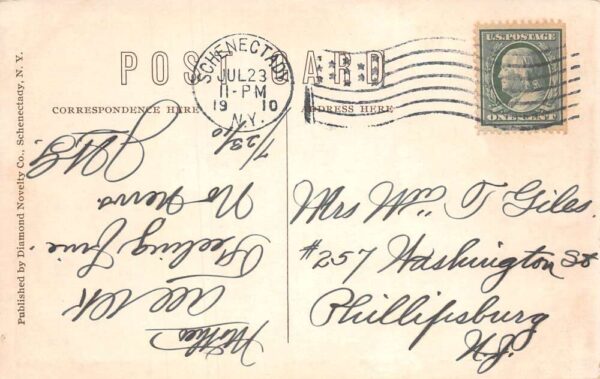 POST CARD
CORRESPONDENCE HERE
ADDRESS HERE
SCHENECTADY
JUL 23
11-PM
1910
N.Y.
U.S. POSTAGE
ONE CENT
Mrs Wm T Giles.
#257 Washington St
Phillipsburg
N.J.
Mother
All OK
Feeling fine
No news.
7/23/10
Published by Diamond Novelty Co., Schenectady, N. Y.